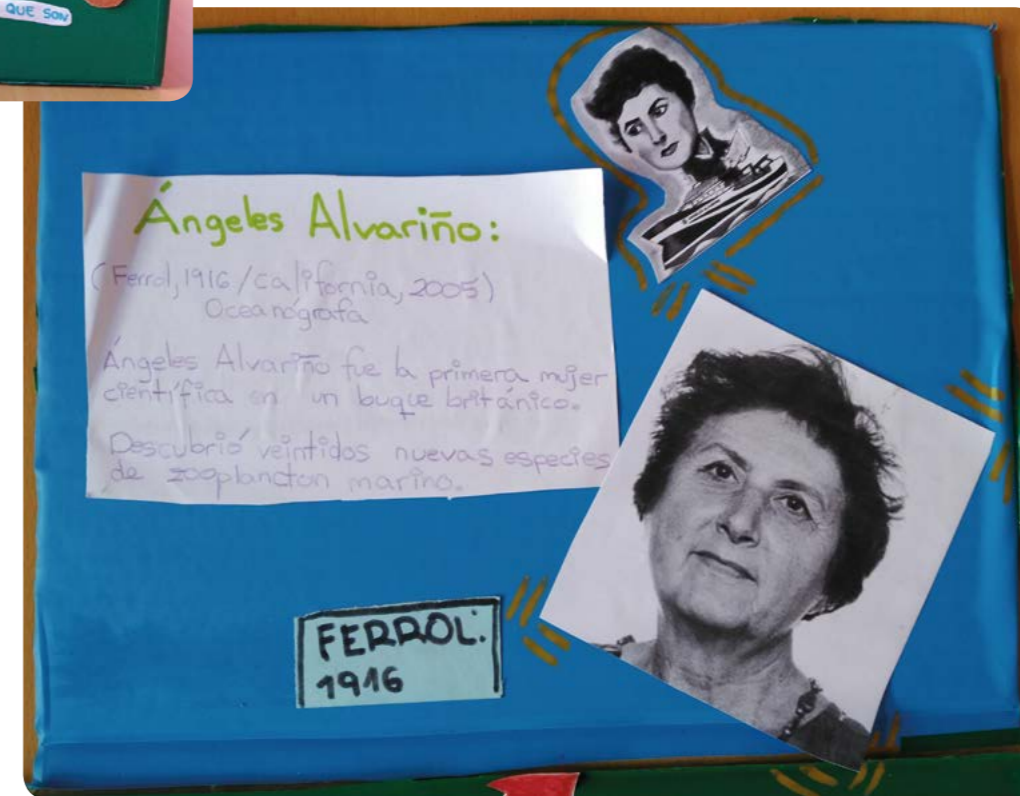 QUE SON
Ángeles Alvariño:
(Ferrol, 1916/California, 2005)
Oceanógrafa
Ángeles Alvariño fue la primera mujer
científica en un buque británico.
Descubrió veintidos nuevas especies
de zooplancton marino.
FERROL:
1916